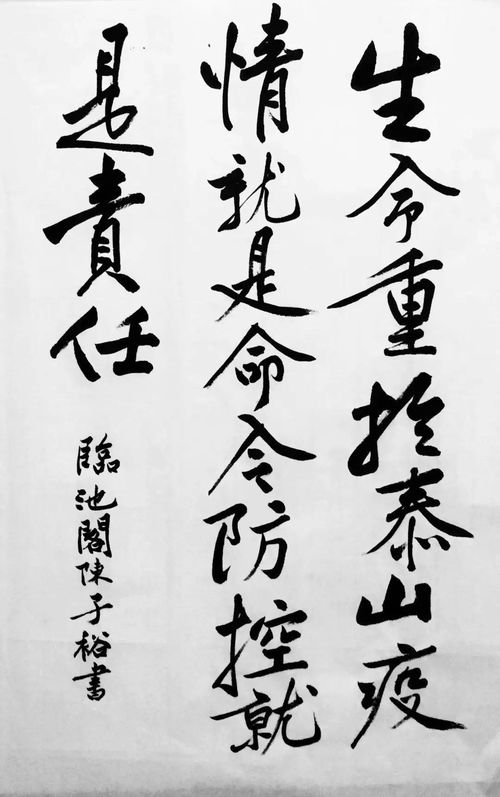 生命重於泰山疫
情就是命令防控就
是責任
臨池閣陳子裕書